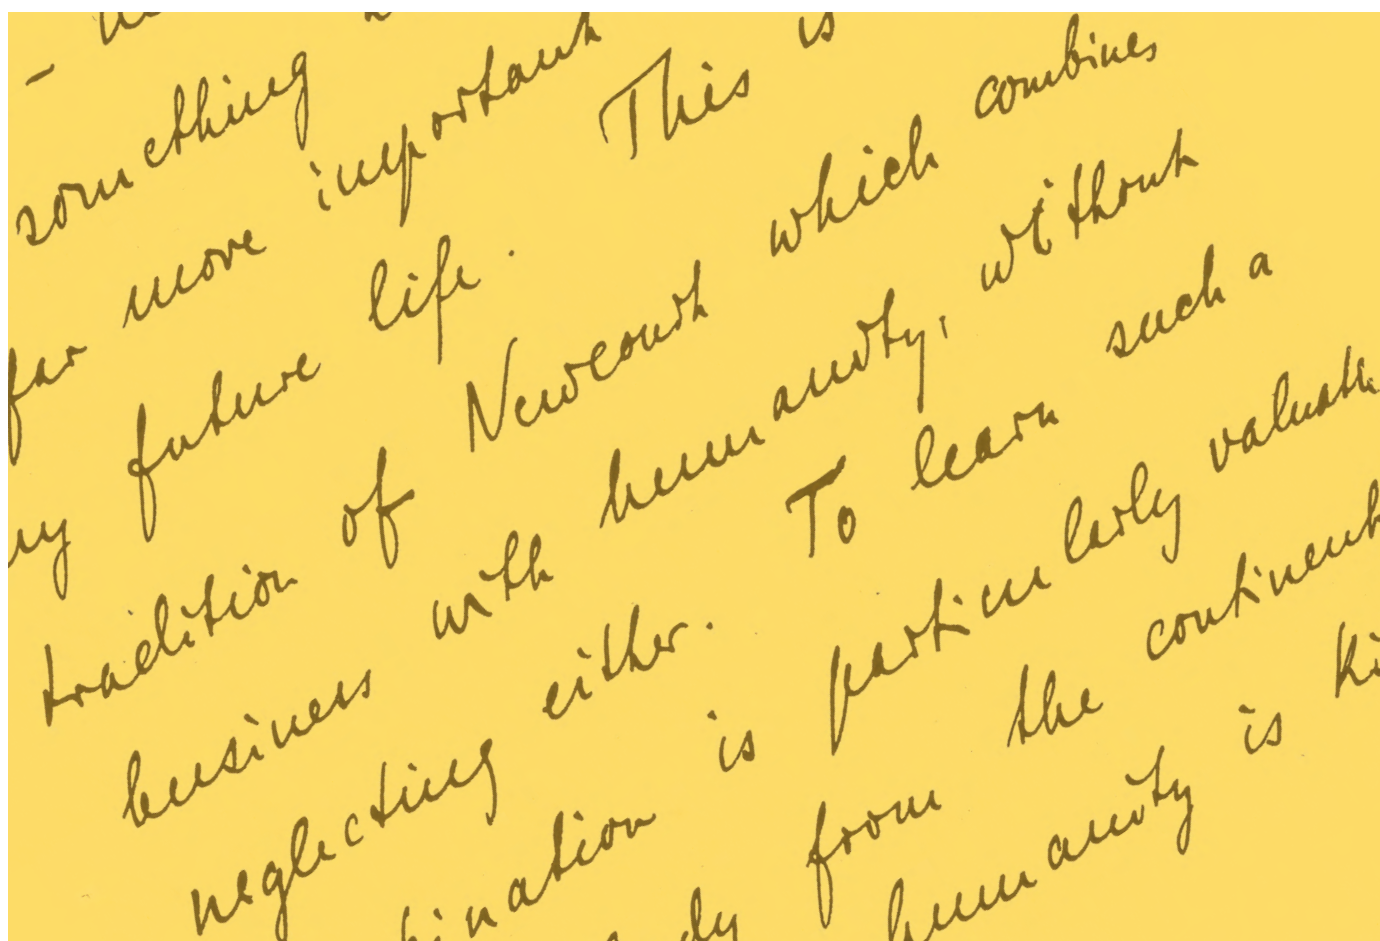 something
far more important
my future life. This is
tradition of Newcourt which combines
business with humanity, without
neglecting either. To learn such a
bination is particularly valuabl
dy from the continent
humanity is ki